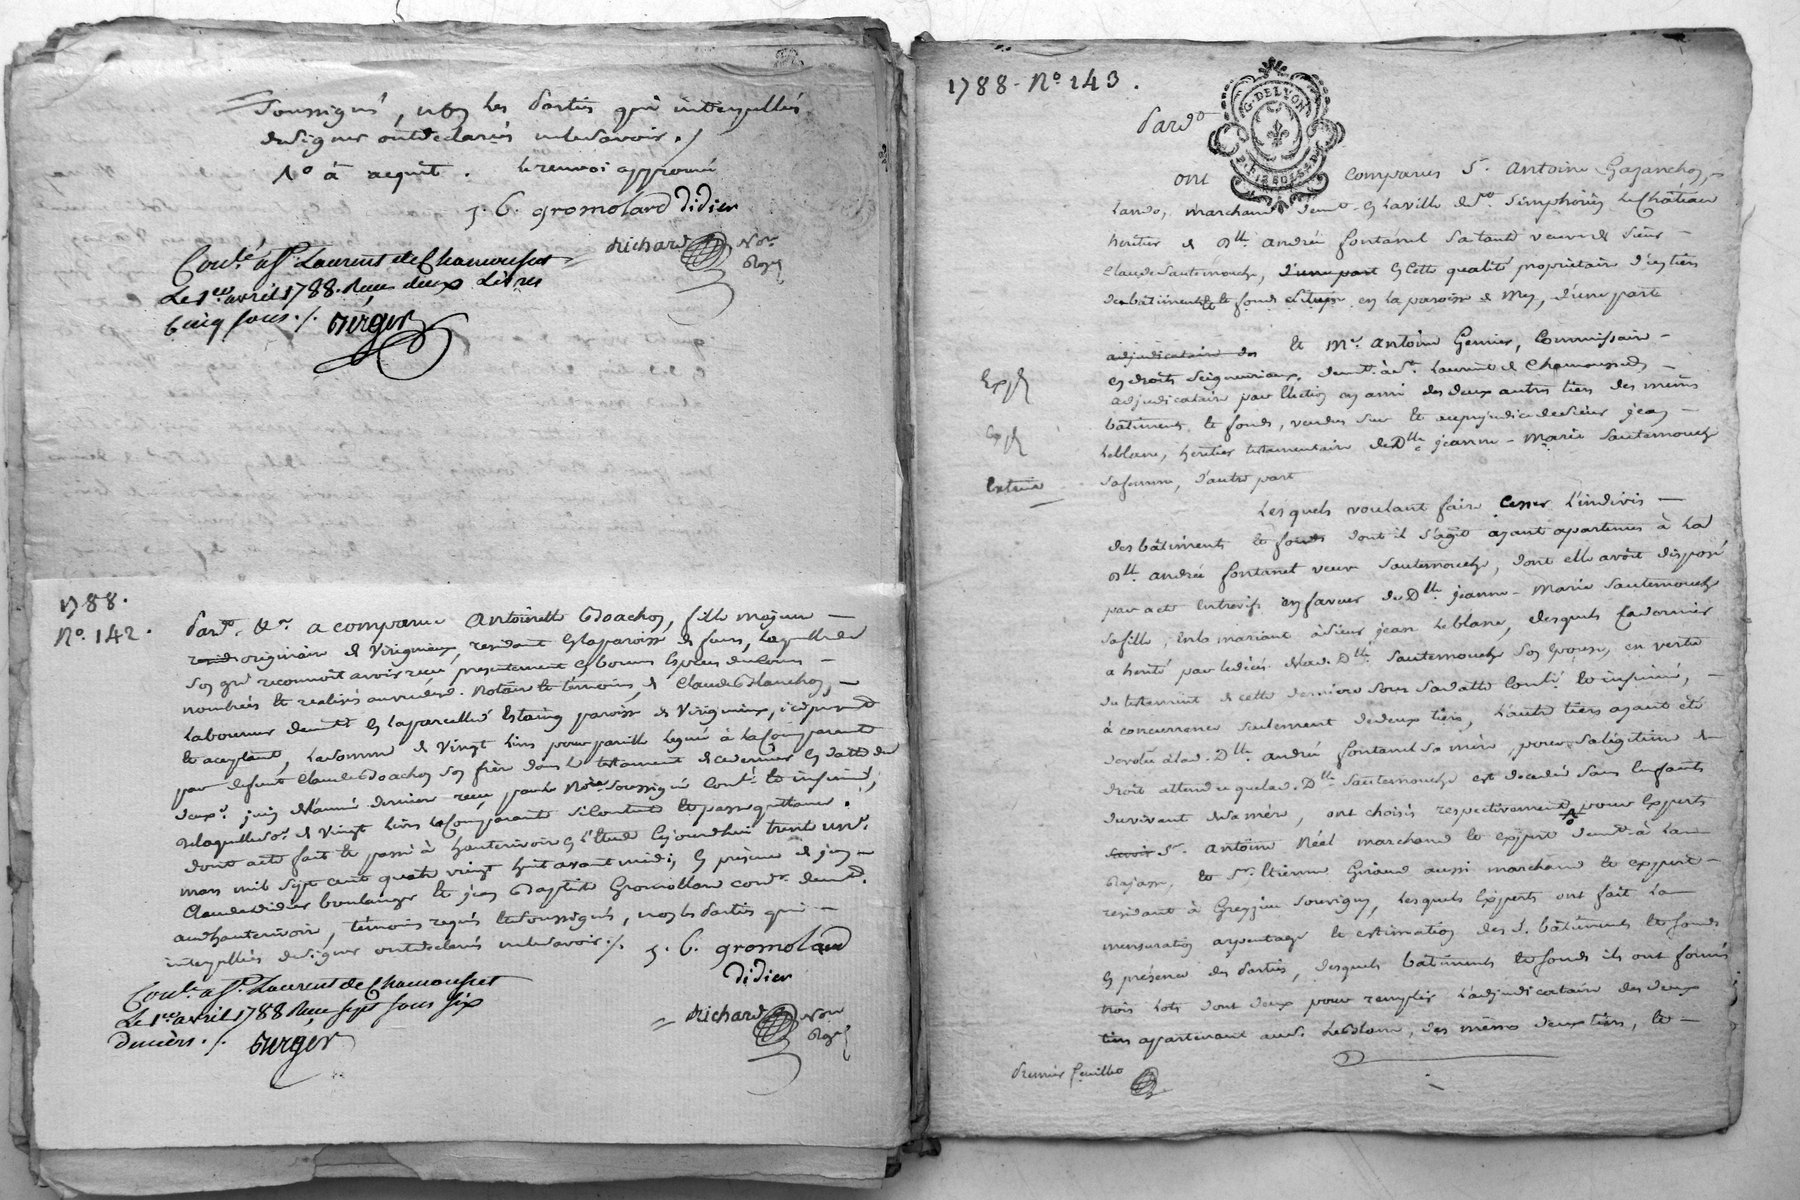 soussigné, non les parties qui interpellées
de signer ont déclarés ne le savoir ./
No à acquit. le renvoi approuvé
J. B. gromolard didier
richard Nore
Royal
Conlé a St. Laurent de Chamousset
Le 1er avril 1788. Reçu deux Livres
Cinq sous ./. Berger
1788.
No. 142.
Pardt. &c. a comparue Antoinette
fille majeure
originaire de Virigneux, residant en la paroisse de laquelle de
son gré reconnoit avoir reçu presentement en bonnes Espèces du Cours
nombrées et realisés au vu desd. Notaire et témoins, de Claude Blanchon,
Laboureur demt en la parcelle d'Estaing paroisse de Virigneux, icy present
et aceptant, La somme de Vingt livres pour pareille leguée à la Comparante
par defunt Claude son frère dans le testament de ce dernier en datte du
deux juin de l'année derniere reçu par le Nore soussigné Conlé et insinué,
de laquelle se. de Vingt livres la Comparante se Contente et passe quittance.
dont acte fait et passé à hauterivoire en l'Etude Cejourdhui trente un
mars mil sept cent quatre vingt huit avant midi, en présence de
Claude Didier boulanger et jean Baptiste Gromollard cordr. demt.
aud hauterivoire, témoins requis et soussignés, non les parties qui
interpellées de signer ont déclarés ne le savoir ./. J. B. gromolard
didier
Conlé a St. Laurent de Chamousset
Le 1er avril 1788 Reçu sept sous six
deniers ./. Berger
richard Nore
Royal
1788. No. 143.
Pardt
G. DE LYON
ont comparus Sr. Antoine
marchand demt. en la ville de St. Simphorien le Château
heritier de Dlle andrée fontanel sa tante veuve de sieur
Claude Sauternouche, d'une part en cette qualité propriétaire d'un tiers
des bâtiments et fonds situés en la paroisse de Mey, d'une part
adjudicataire des et Mr. Antoine Commissaire
en droits seigneuriaux, demt. à St. Laurent de Chamousset
Adjudicataire par Election en ami des deux autres tiers des mêmes
bâtiments et fonds, vendus sur et au prejudice de sieur jean
Leblanc, héritier testamentaire de Dlle jeanne-Marie Sauternouche
sa femme, d'autre part
Extrait
Lesquels voulant faire Cesser L'indivis
des bâtiments et fonds dont il s'agit ayant apartenus à lad
Dlle andrée fontanel veuve Sauternouche, dont elle avoit disposé
par acte entrevifs en faveur de Dlle jeanne-Marie Sauternouche
sa fille, en la mariant à sieur jean Leblanc, desquels ce dernier
a herité par le décès de lad. Dlle Sauternouche son Epouse, en vertu
du testament de cette derniere sous sa datte Conlé et insinué,
à concurrence seulement de deux tiers, L'autre tiers ayant eté
devolu à lad. Dlle andrée fontanel sa mère, pour sa légitime de
droit attendu que lad. Dlle Sauternouche est decedée sans Enfants
du vivant de sa mère, ont choisis respectivement pour Experts
Savoir Sr. Antoine Réel marchand et expert demt. à La
Rajasse, et Sr. Etienne Giraud aussi marchand et expert
residant à Grezieu Souvigny, Lesquels Experts ont fait La
mensuration arpentage et estimation des d. bâtiments et fonds
en présence des parties, desquels bâtiments et fonds ils ont formé
trois Lots dont deux pour remplir L'adjudicataire des deux
tiers appartenant aud. Leblanc, des mêmes deux tiers, et
premier feuillet